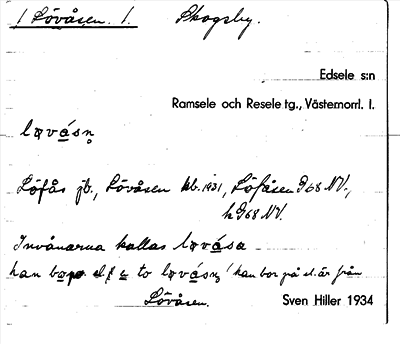 1 Lövåsen. 1. Skogsby.
Edsele s:n
Ramsele och Resele tg., Västernorrl. l.
lɷvásn̥
Löfås jb., Lövåsen kb. 1931, Löfåsen G68 NV.,
h G68 NV.
Invånarna kallas lɷvása
han to lɷvásn̥ 'han bor på el. är från
Lövåsen.
Sven Hiller 1934